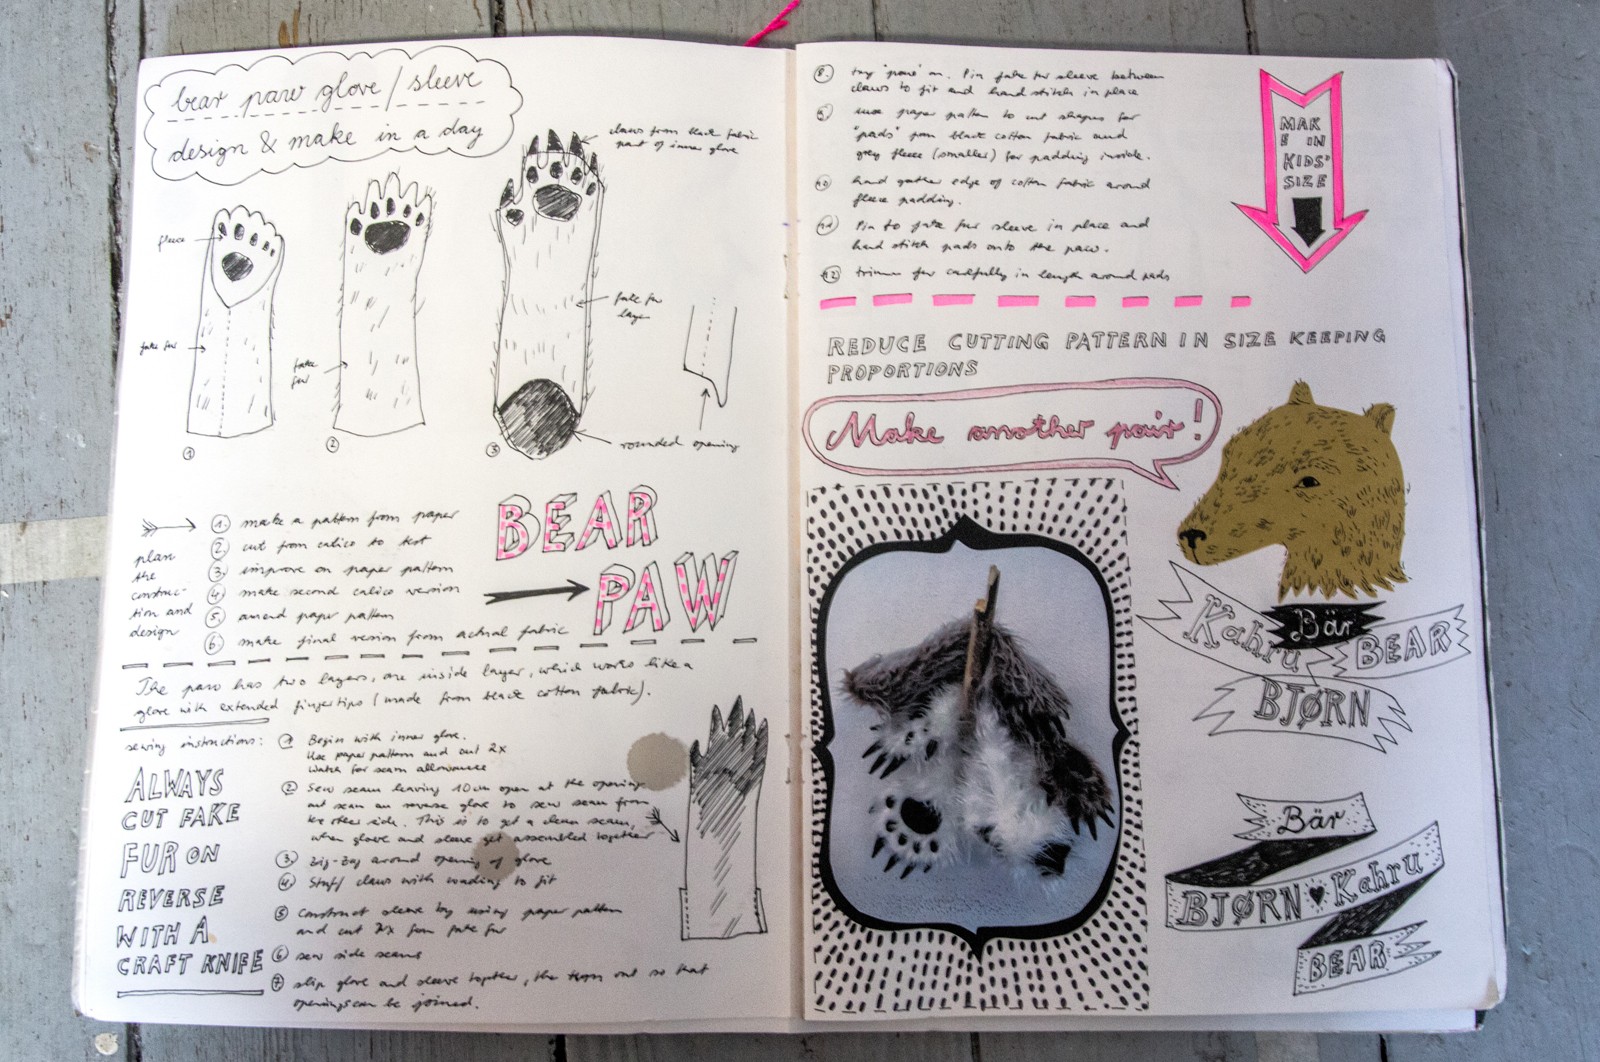 bear paw glove / sleeve
design & make in a day
claws from black fabric
part of inner glove
fleece
fake fur
fake
fur
fake fur
layer
rounded opening
1
2
3
BEAR
PAW
plan
the
construc-
tion and
design
1. make a pattern from paper
2. cut from calico to test
3. improve on paper pattern
4. make second calico version
5. amend paper pattern
6. make final version from actual fabric
The paw has two layers, one inside layer, which works like a
glove with extended fingertips (made from black cotton fabric).
sewing instructions:
ALWAYS
CUT FAKE
FUR ON
REVERSE
WITH A
CRAFT KNIFE
1 Begin with inner glove.
Use paper pattern and cut 2x
Watch for seam allowance
2 Sew seam leaving 10cm open at the opening
seam on reverse glove to sew seam from
the other side. This is to get a clean seam,
when glove and sleeve get assembled together
3 Zig-Zag around opening of glove
4. Stuff claws with wadding to fit
5 Construct sleeve by using paper pattern
and cut 2x from fake fur
6 sew side seams
7 slip glove and sleeve together, the turn out so that
openings can be joined.
8. try "paw" on. Pin fake fur sleeve between
claws to fit and hand stitch in place
9. use paper pattern to cut shapes for
"pads" from black cotton fabric and
grey fleece (smaller) for padding inside.
10 hand gather edge of cotton fabric around
fleece padding.
11 Pin to fake fur sleeve in place and
hand stitch pads onto the paw.
12 trimm fur carefully in length around pads
MAK
E IN
KIDS'
SIZE
REDUCE CUTTING PATTERN IN SIZE KEEPING
PROPORTIONS
Make another pair!
Kahru
Bär
BEAR
BJØRN
Bär
BJØRN ♥ Kahru
BEAR